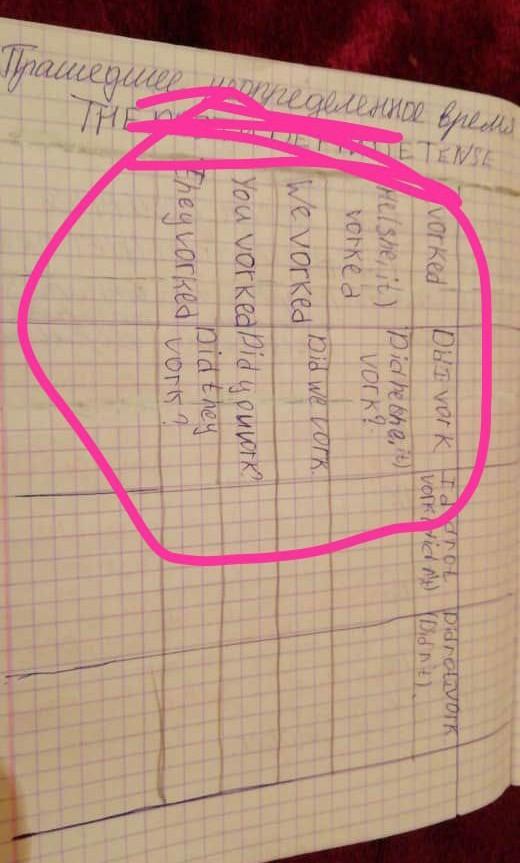 Прашедшее неопределенное время
THE TENSE
vorked DID I vork I did not vork (did n't) Did not I vork (Did n't).
He(she, it) vorked Did he(she, it) vork?
We vorked Did we vork.
You vorked Did you work?
They vorked Did they vork?